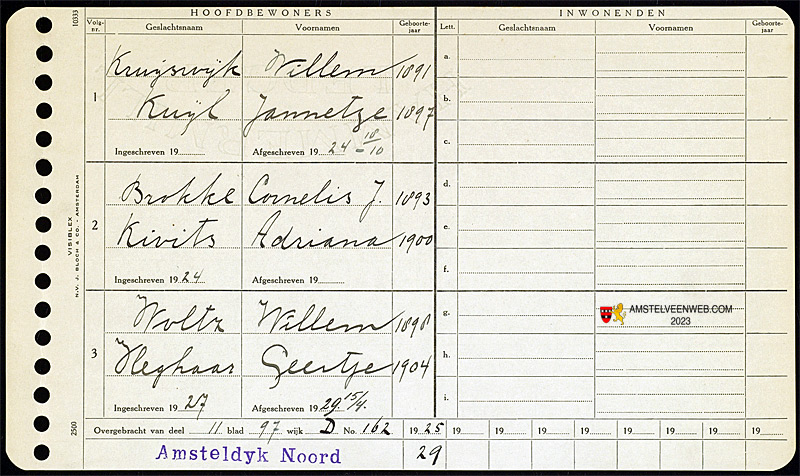 HOOFDBEWONERS INWONENDEN
10333 Volg-nr. Geslachtsnaam Voornamen Geboorte-jaar Lett. Geslachtsnaam Voornamen Geboorte-jaar
Kruijswijk Willem 1891 a.
1 Kuijl Jannetje 1897 b.
Ingeschreven 19 Afgeschreven 19 24 - 18/10 c.
Brokke Cornelis J. 1893 d.
2 Kivits Adriana 1900 e.
Ingeschreven 19 24 Afgeschreven 19 f.
VISIBLEX
N.V. J. BLOCH & CO. - AMSTERDAM
Woltz Willem 1898 g.
AMSTELVEENWEB.COM
2023
3 Heghaar Geertje 1904 h.
Ingeschreven 19 27 Afgeschreven 19 29 15/4. i.
2500 Overgebracht van deel 11 blad 97 wijk D No. 162 19 25 19 19 19 19 19 19 19 19
Amsteldyk Noord 29